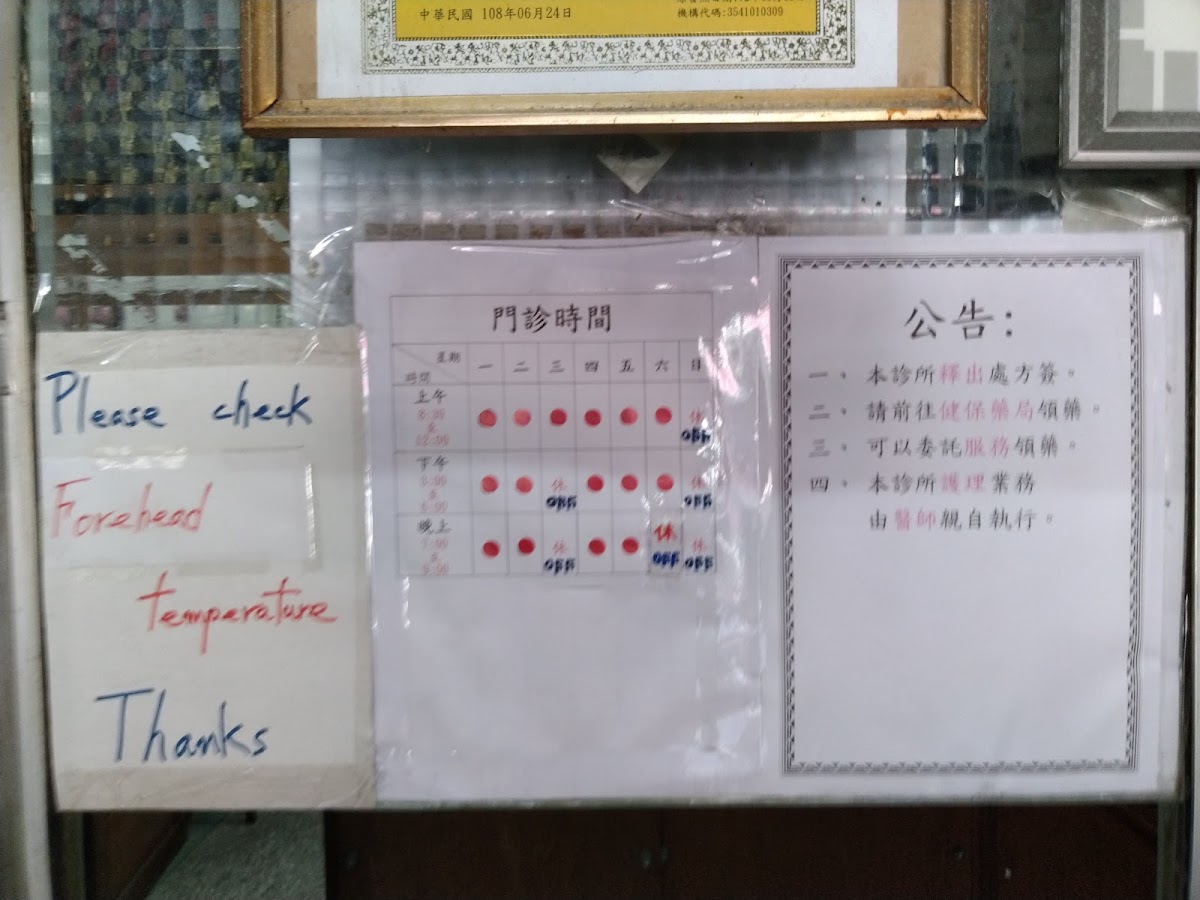 中華民國 108年06月24日
機構代碼:3541010309
Please check
Forehead
temperature
Thanks
門診時間
星期
時間
一 二 三 四 五 六 日
上午
8:30
至
12:00
● ● ● ● ● ● 休
OFF
下午
3:00
至
● ● 休 ● ● ● 休
OFF OFF
晚上
7:00
至
9:00
● ● 休 ● ● 休 休
OFF OFF OFF
公告:
一、本診所釋出處方簽。
二、請前往健保藥局領藥。
三、可以委託服務領藥。
四、本診所護理業務
由醫師親自執行。